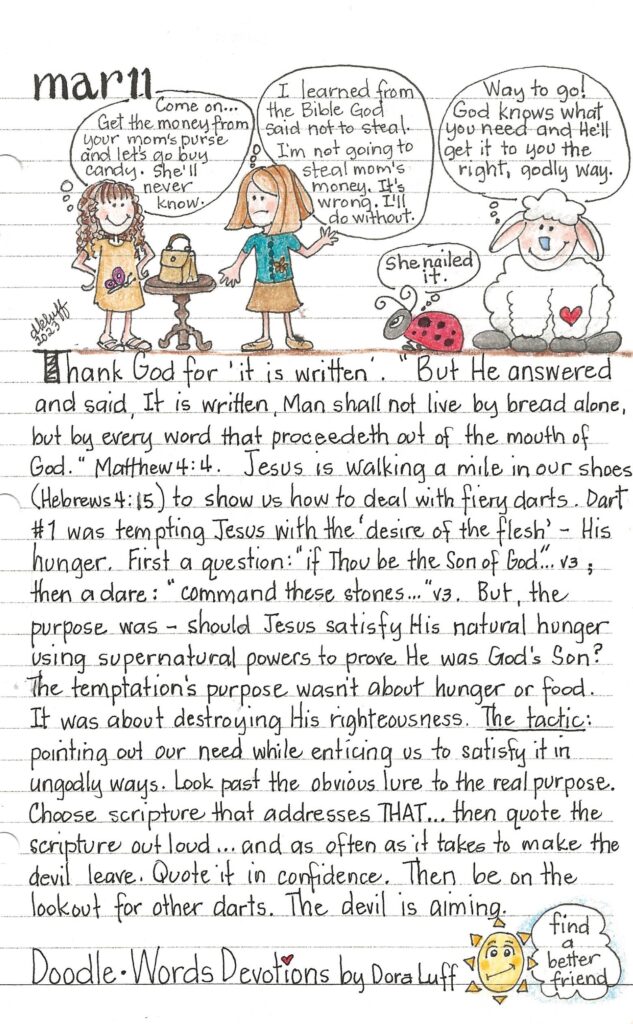 mar 11
Come on...
Get the money from
your mom's purse
and let's go buy
candy. She'll
never
know.
I learned from
the Bible God
said not to steal.
I'm not going to
steal mom's
money. It's
wrong. I'll
do without.
Way to go!
God knows what
you need and He'll
get it to you the
right, godly way.
She nailed
it.
dkluff
2023
Thank God for 'it is written'. "But He answered
and said, It is written, Man shall not live by bread alone,
but by every word that proceedeth out of the mouth of
God." Matthew 4:4. Jesus is walking a mile in our shoes
(Hebrews 4:15) to show us how to deal with fiery darts. Dart
#1 was tempting Jesus with the 'desire of the flesh' - His
hunger. First a question: "if Thou be the Son of God"... v3;
then a dare: "command these stones..." v3. But, the
purpose was - should Jesus satisfy His natural hunger
using supernatural powers to prove He was God's Son?
The temptation's purpose wasn't about hunger or food.
It was about destroying His righteousness. The tactic:
pointing out our need while enticing us to satisfy it in
ungodly ways. Look past the obvious lure to the real purpose.
Choose scripture that addresses THAT... then quote the
scripture out loud... and as often as it takes to make the
devil leave. Quote it in confidence. Then be on the
lookout for other darts. The devil is aiming.
Doodle·Words Devotions by Dora Luff
find
a
better
friend